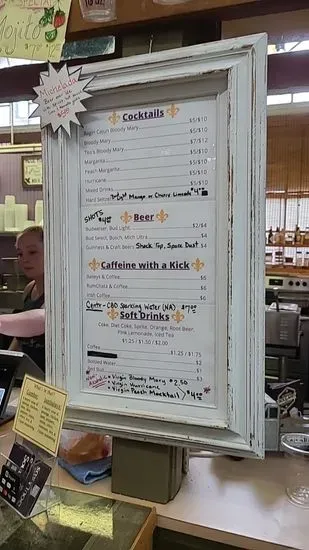 Mojito
Michelada
Cocktails
Ragin Cajun Bloody Mary $5/$10
Bloody Mary $5/$10
Tea's Bloody Mary $7/$12
Margarita $5/$10
Peach Margarita $5/$10
Hurricane $5/$10
Mixed Drinks $5/$10
Hard Seltzer Mango or Cherry Limeade $4
SHOTS
Beer
Budweiser, Bud Light $2/$4
Bud Select, Busch, Mich Ultra $4
Guinness & Craft Beers Shock Top, Space Dust $4
Caffeine with a Kick
Baileys & Coffee $6
RumChata & Coffee $6
Irish Coffee $6
CBD Sparkling Water (NA)
Soft Drinks
Coke, Diet Coke, Sprite, Orange, Root Beer,
Pink Lemonade, Iced Tea
$1.25 / $1.50 / $2.00
Coffee $1.25 / $1.75
Bottled Water $2
Red Bull $3
Non Alcoholic
• Virgin Bloody Mary $2.50
• Virgin Hurricane
• Virgin Peach Mocktail
What is a